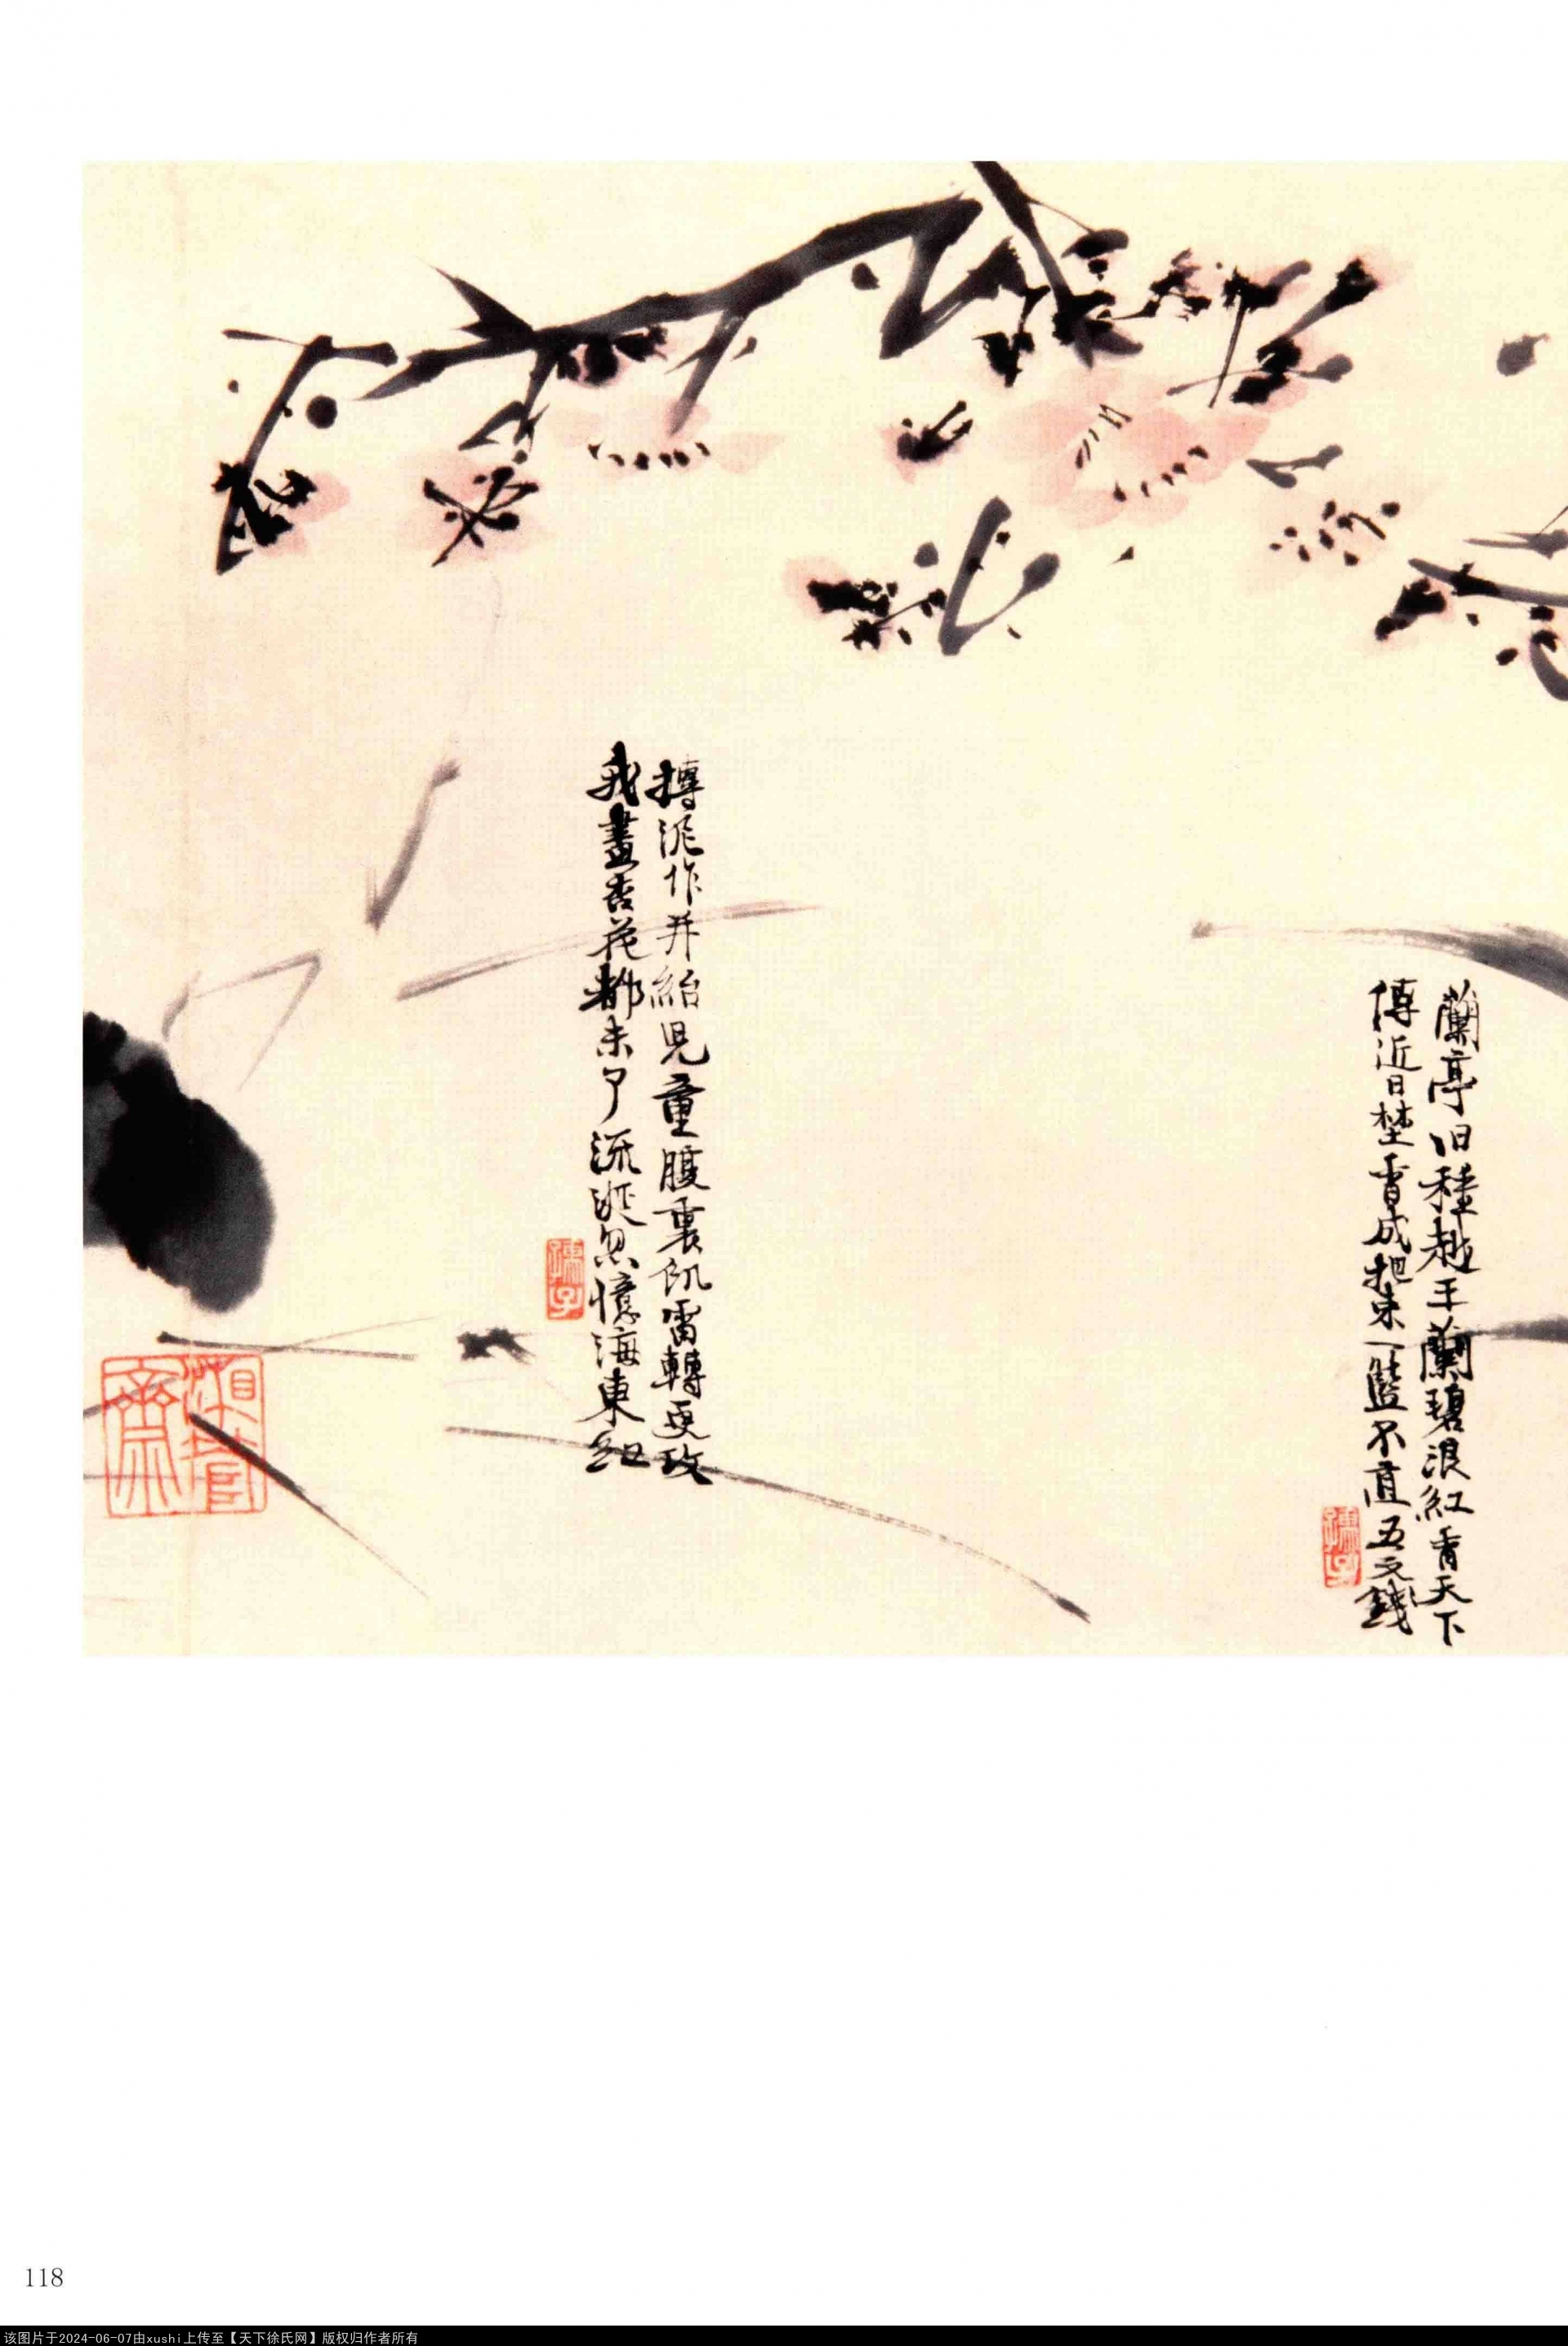 蘭亭旧種越王蘭碧浪紅香天下
傳近日埜香成把束一籃不直五文錢
摶泥作餅紿兒童腹裏飢雷轉更攻
我畫杏花都未了流涎忽憶海東紅
118
该图片于2024-06-07由xushi上传至【天下徐氏网】版权归作者所有